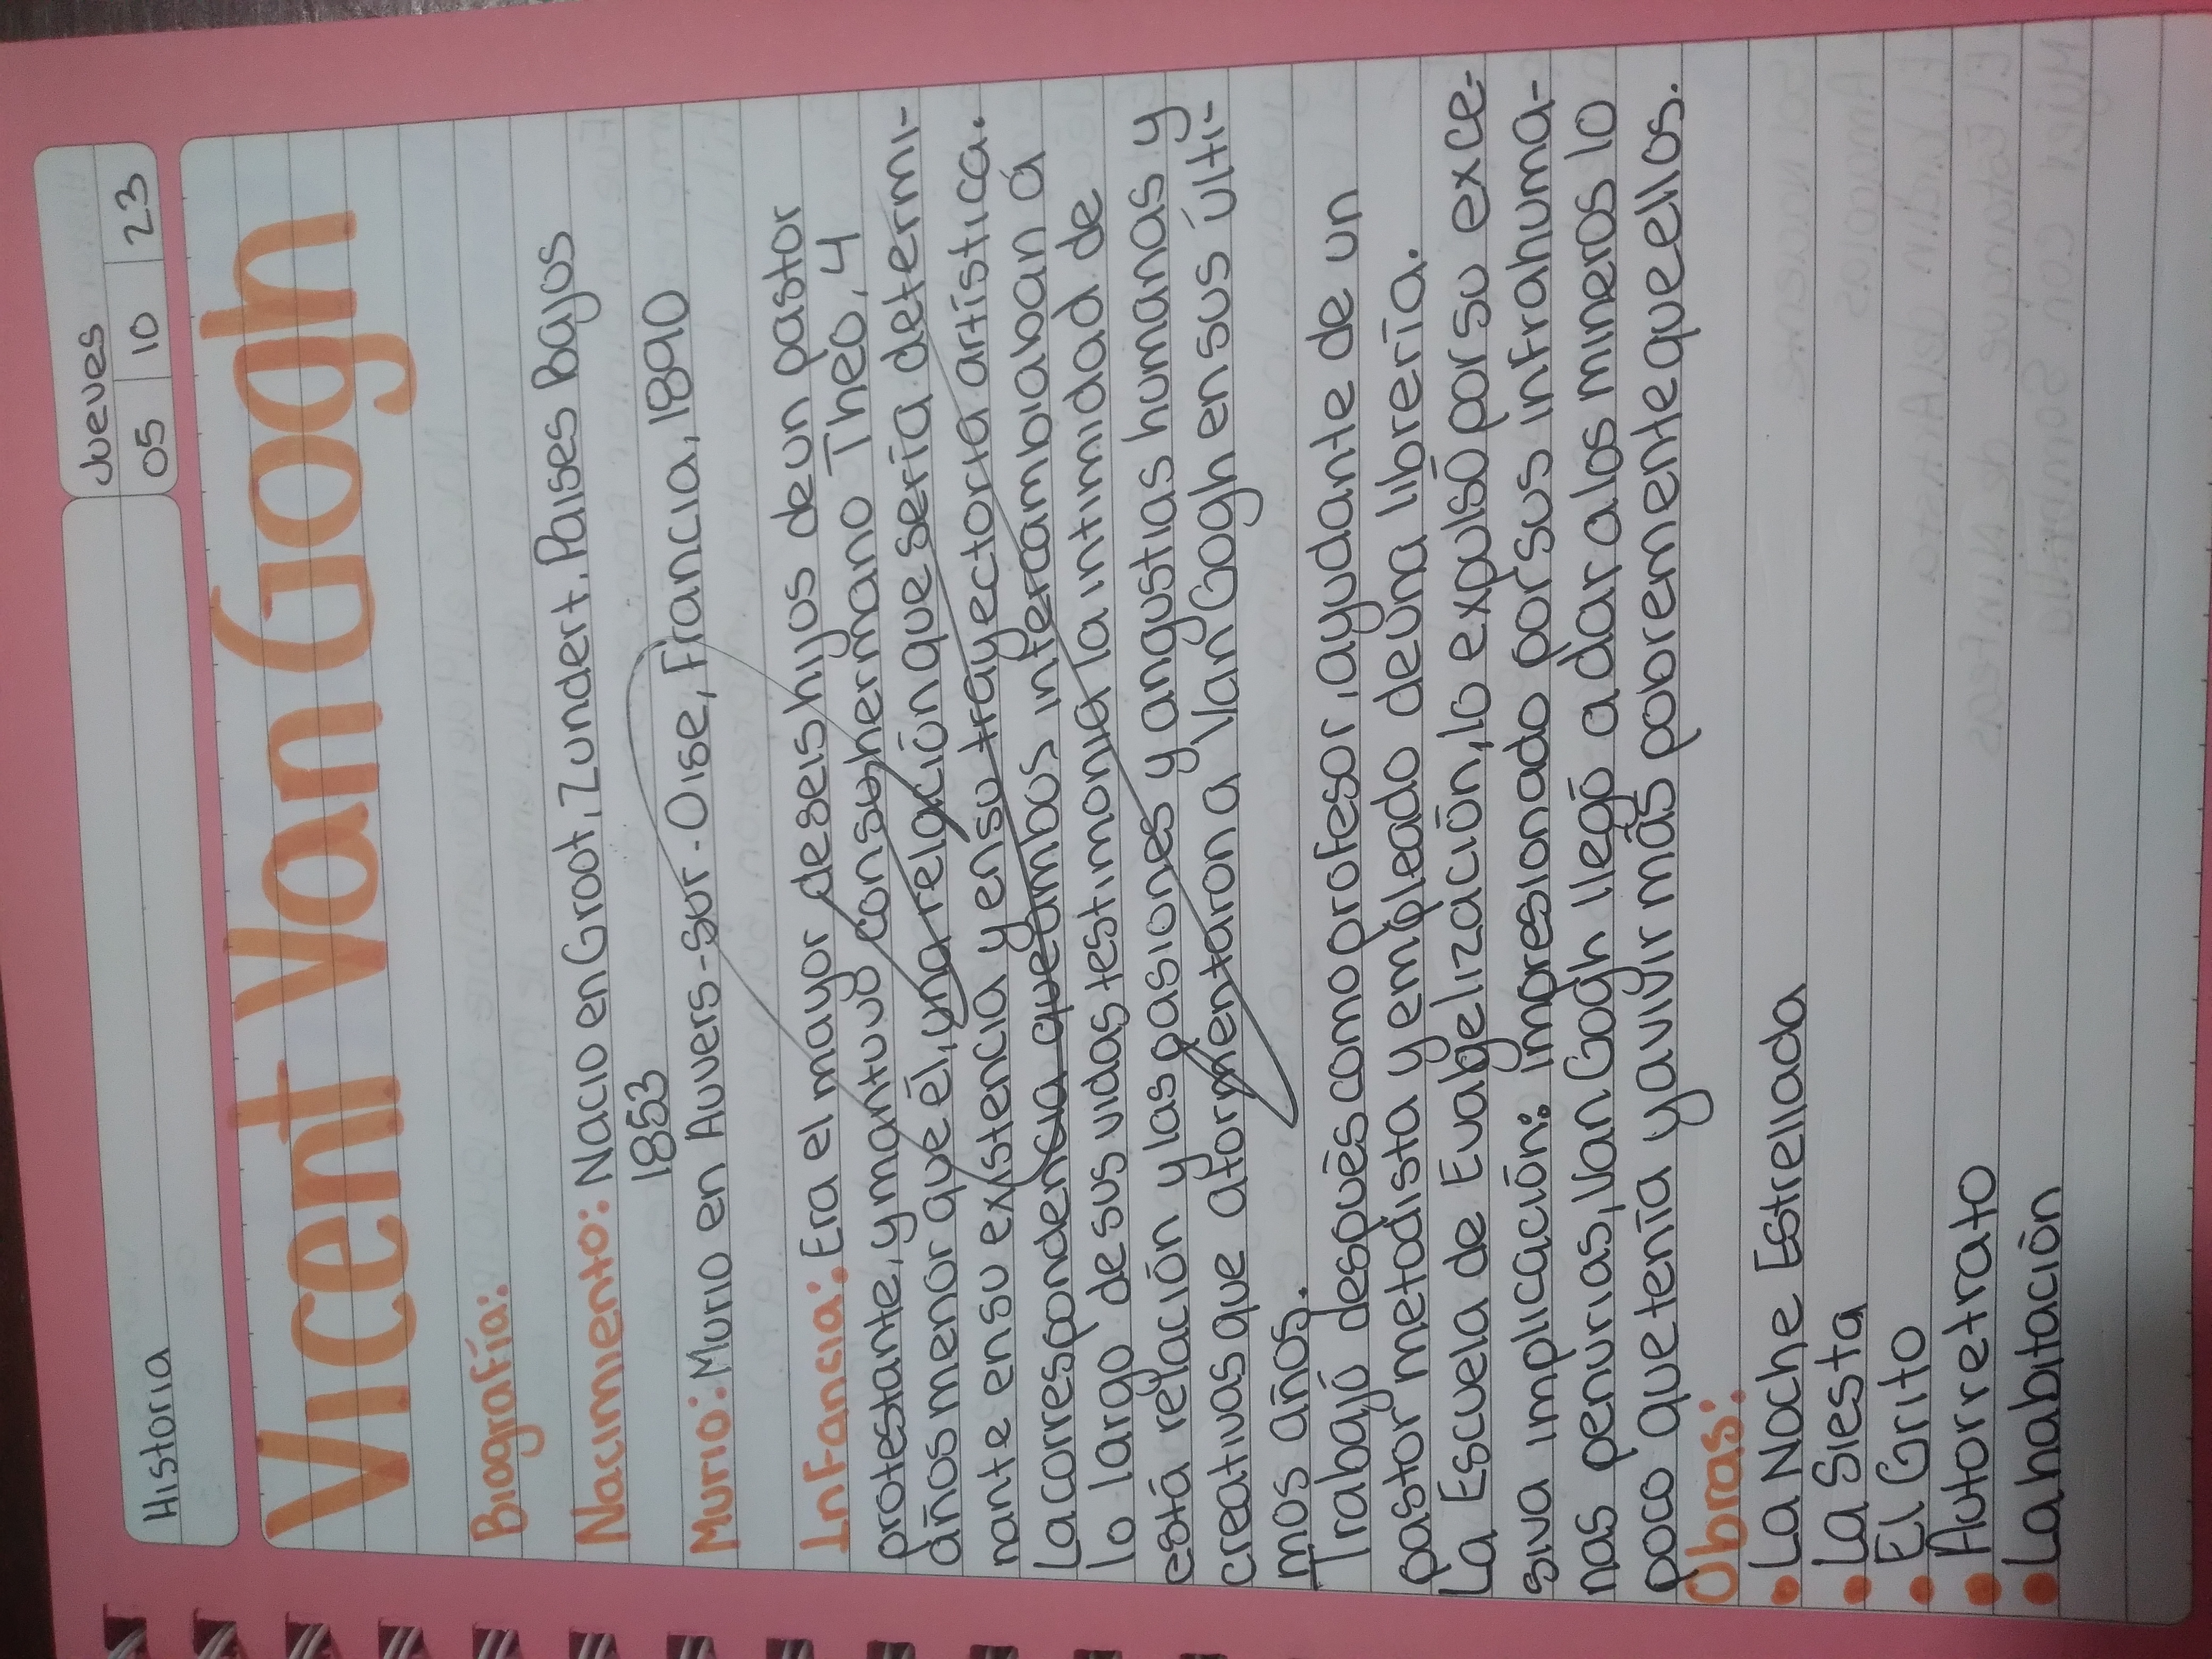 Historia
Jueves
05 10 23
Vicent Van Gogh
Biografía:
Nacimiento: Nacio en Groot, Zundert. Paises Bajos
1853
Murio: Murio en Auvers-sur-Oise, Francia, 1890
InFancia: Era el mayor de seis hijos de un pastor
protestante, y mantuvo con su hermano Theo, 4
años menor que él, una relación que sería determi-
nante en su existencia y en su trayectoria artística.
La correspondencia que ambos intercambiaban á
lo largo de sus vidas testimonia la intimidad de
está relación y las pasiones y angustias humanas y
creativas que atormentaron a Van Gogh en sus últi-
mos años.
Trabajó después como profesor, ayudante de un
pastor metodista y empleado de una librería.
La Escuela de Evabgelización, lo expulsó por su exce-
siva implicación: impresionado por sus infrahuma-
nas penurias, Van Gogh llegó a dar a los mineros lo
poco que tenía y a vivir más pobremente que ellos.
Obras:
• La Noche Estrellada
• La Siesta
• El Grito
• Autorretrato
• La habitación